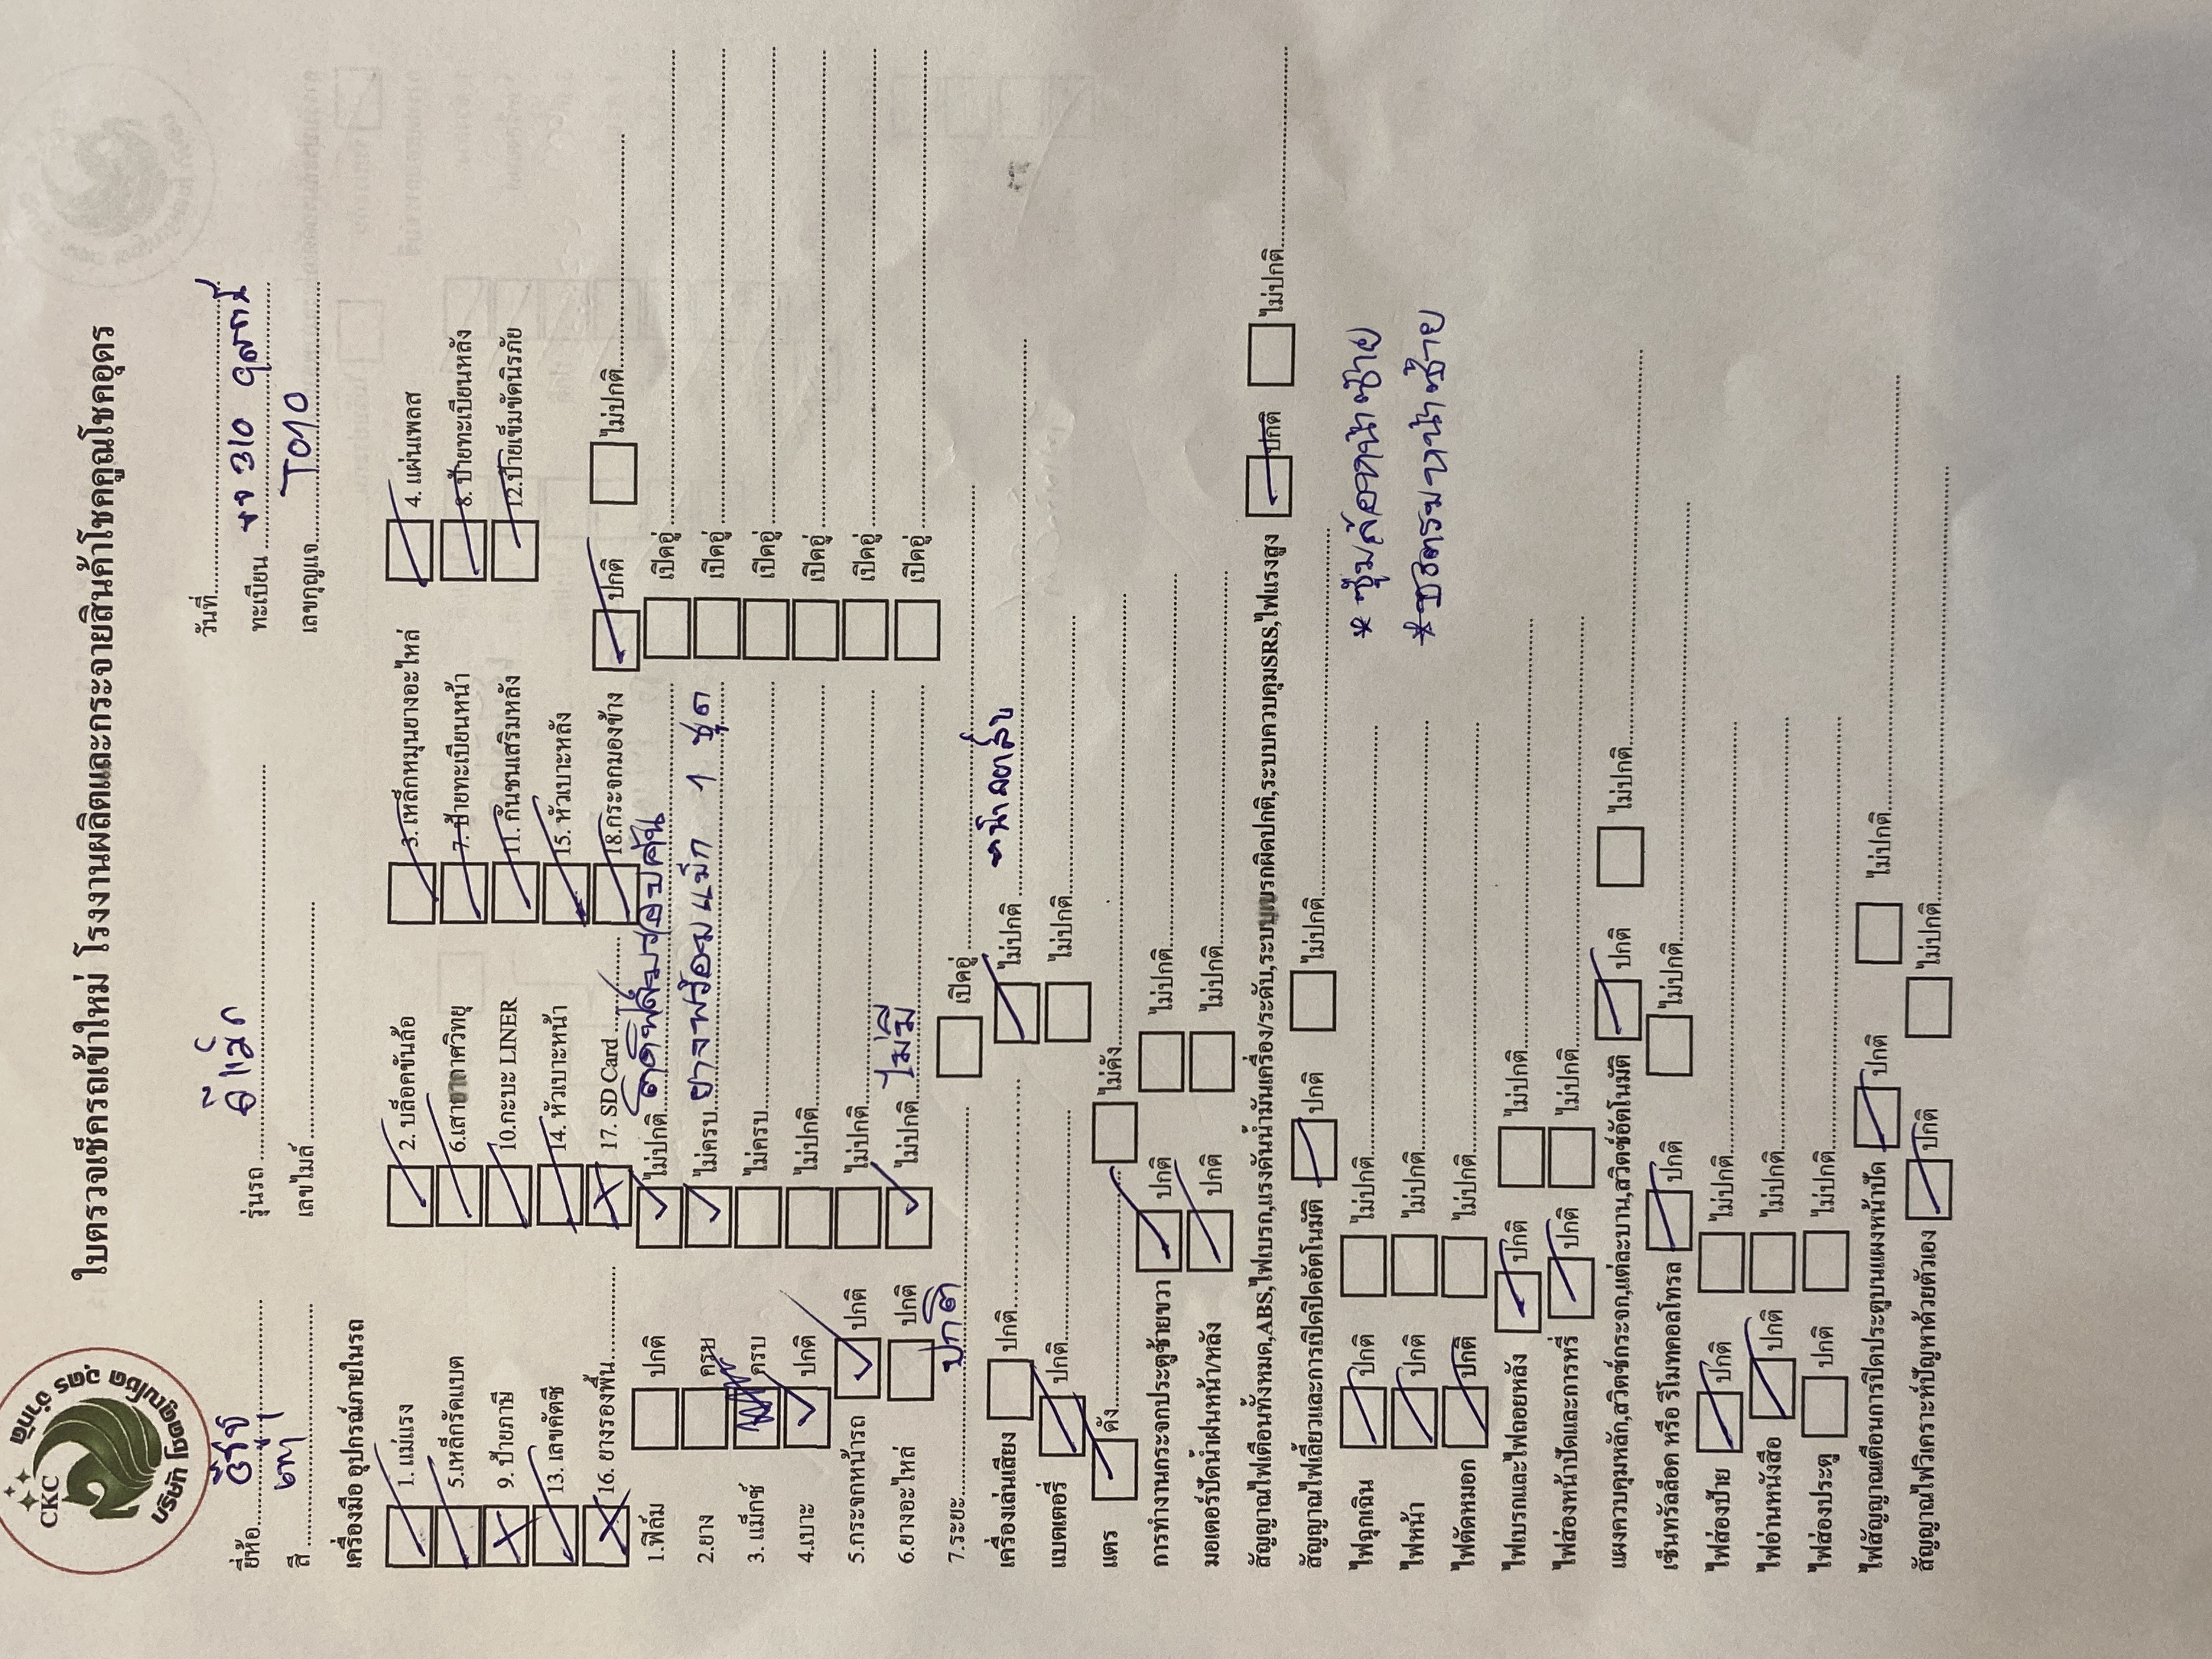 CKC
บริษัท โชคคูณโชค อุดร จำกัด
ใบตรวจเช็ครถเข้าใหม่ โรงงานผลิตและกระจายสินค้าโชคคูณโชคอุดร
วันที่
ยี่ห้อ อีซูซุ รุ่นรถ ดีแม็ก ทะเบียน 310
สี เทา เลขไมล์ เลขกุญแจ T010
เครื่องมือ อุปกรณ์ภายในรถ
1. แม่แรง 2. บล็อคขันล้อ 3. เหล็กหมุนยางอะไหล่ 4. แผ่นเพลส
5.เหล็กรัดแบต 6.เสาอากาศวิทยุ 7. ป้ายทะเบียนหน้า 8. ป้ายทะเบียนหลัง
9. ป้ายภาษี 10.กะบะ LINER 11. กันชนเสริมหลัง 12.ป้ายเข็มขัดนิรภัย
13. เลขคัตซี 14. หัวเบาะหน้า 15. หัวเบาะหลัง
16. ยางรองพื้น 17. SD Card 18.กระจกมองข้าง ปกติ ไม่ปกติ
1.ฟิล์ม ปกติ ไม่ปกติ ติดฟิล์มรอบคัน เปิดอู่
2.ยาง ครบ ไม่ครบ ยางพร้อมแม็ก 1 ชุด เปิดอู่
3. แม็กซ์ ครบ ไม่ครบ เปิดอู่
4.เบาะ ปกติ ไม่ปกติ เปิดอู่
5.กระจกหน้ารถ ปกติ ไม่ปกติ เปิดอู่
6.ยางอะไหล่ ปกติ ไม่ปกติ ไม่มี เปิดอู่
7.ระยะ ปกติ เปิดอู่
เครื่องเล่นเสียง ปกติ ไม่ปกติ
แบตเตอรี่ ปกติ ไม่ปกติ
แตร ดัง ไม่ดัง
การทำงานกระจกประตูซ้ายขวา ปกติ ไม่ปกติ
มอเตอร์ปัดน้ำฝนหน้า/หลัง ปกติ ไม่ปกติ
สัญญาณไฟเตือนทั้งหมด,ABS,ไฟเบรก,แรงดันน้ำมันเครื่อง/ระดับ,ระบบเบรกผิดปกติ,ระบบควบคุมSRS,ไฟแรงสูง ปกติ ไม่ปกติ
สัญญาณไฟเลี้ยวและการเปิดปิดอัตโนมัติ ปกติ ไม่ปกติ
ไฟฉุกเฉิน ปกติ ไม่ปกติ * ซุ้มล้อหน้าซ้าย
ไฟหน้า ปกติ ไม่ปกติ
ไฟตัดหมอก ปกติ ไม่ปกติ
ไฟเบรกและไฟถอยหลัง ปกติ ไม่ปกติ
ไฟส่องหน้าปัดและการหรี่ ปกติ ไม่ปกติ
แผงควบคุมหลัก,สวิตช์กระจก,แต่ละบาน,สวิตช์อัตโนมัติ ปกติ ไม่ปกติ
เซ็นทรัลล็อค หรือ รีโมทคอลโทรล ปกติ ไม่ปกติ
ไฟส่องป้าย ปกติ ไม่ปกติ
ไฟอ่านหนังสือ ปกติ ไม่ปกติ
ไฟส่องประตู ปกติ ไม่ปกติ
ไฟสัญญาณเตือนการปิดประตูบนแผงหน้าปัด ปกติ ไม่ปกติ
สัญญาณไฟวิเคราะห์ปัญหาด้วยตัวเอง ปกติ ไม่ปกติ